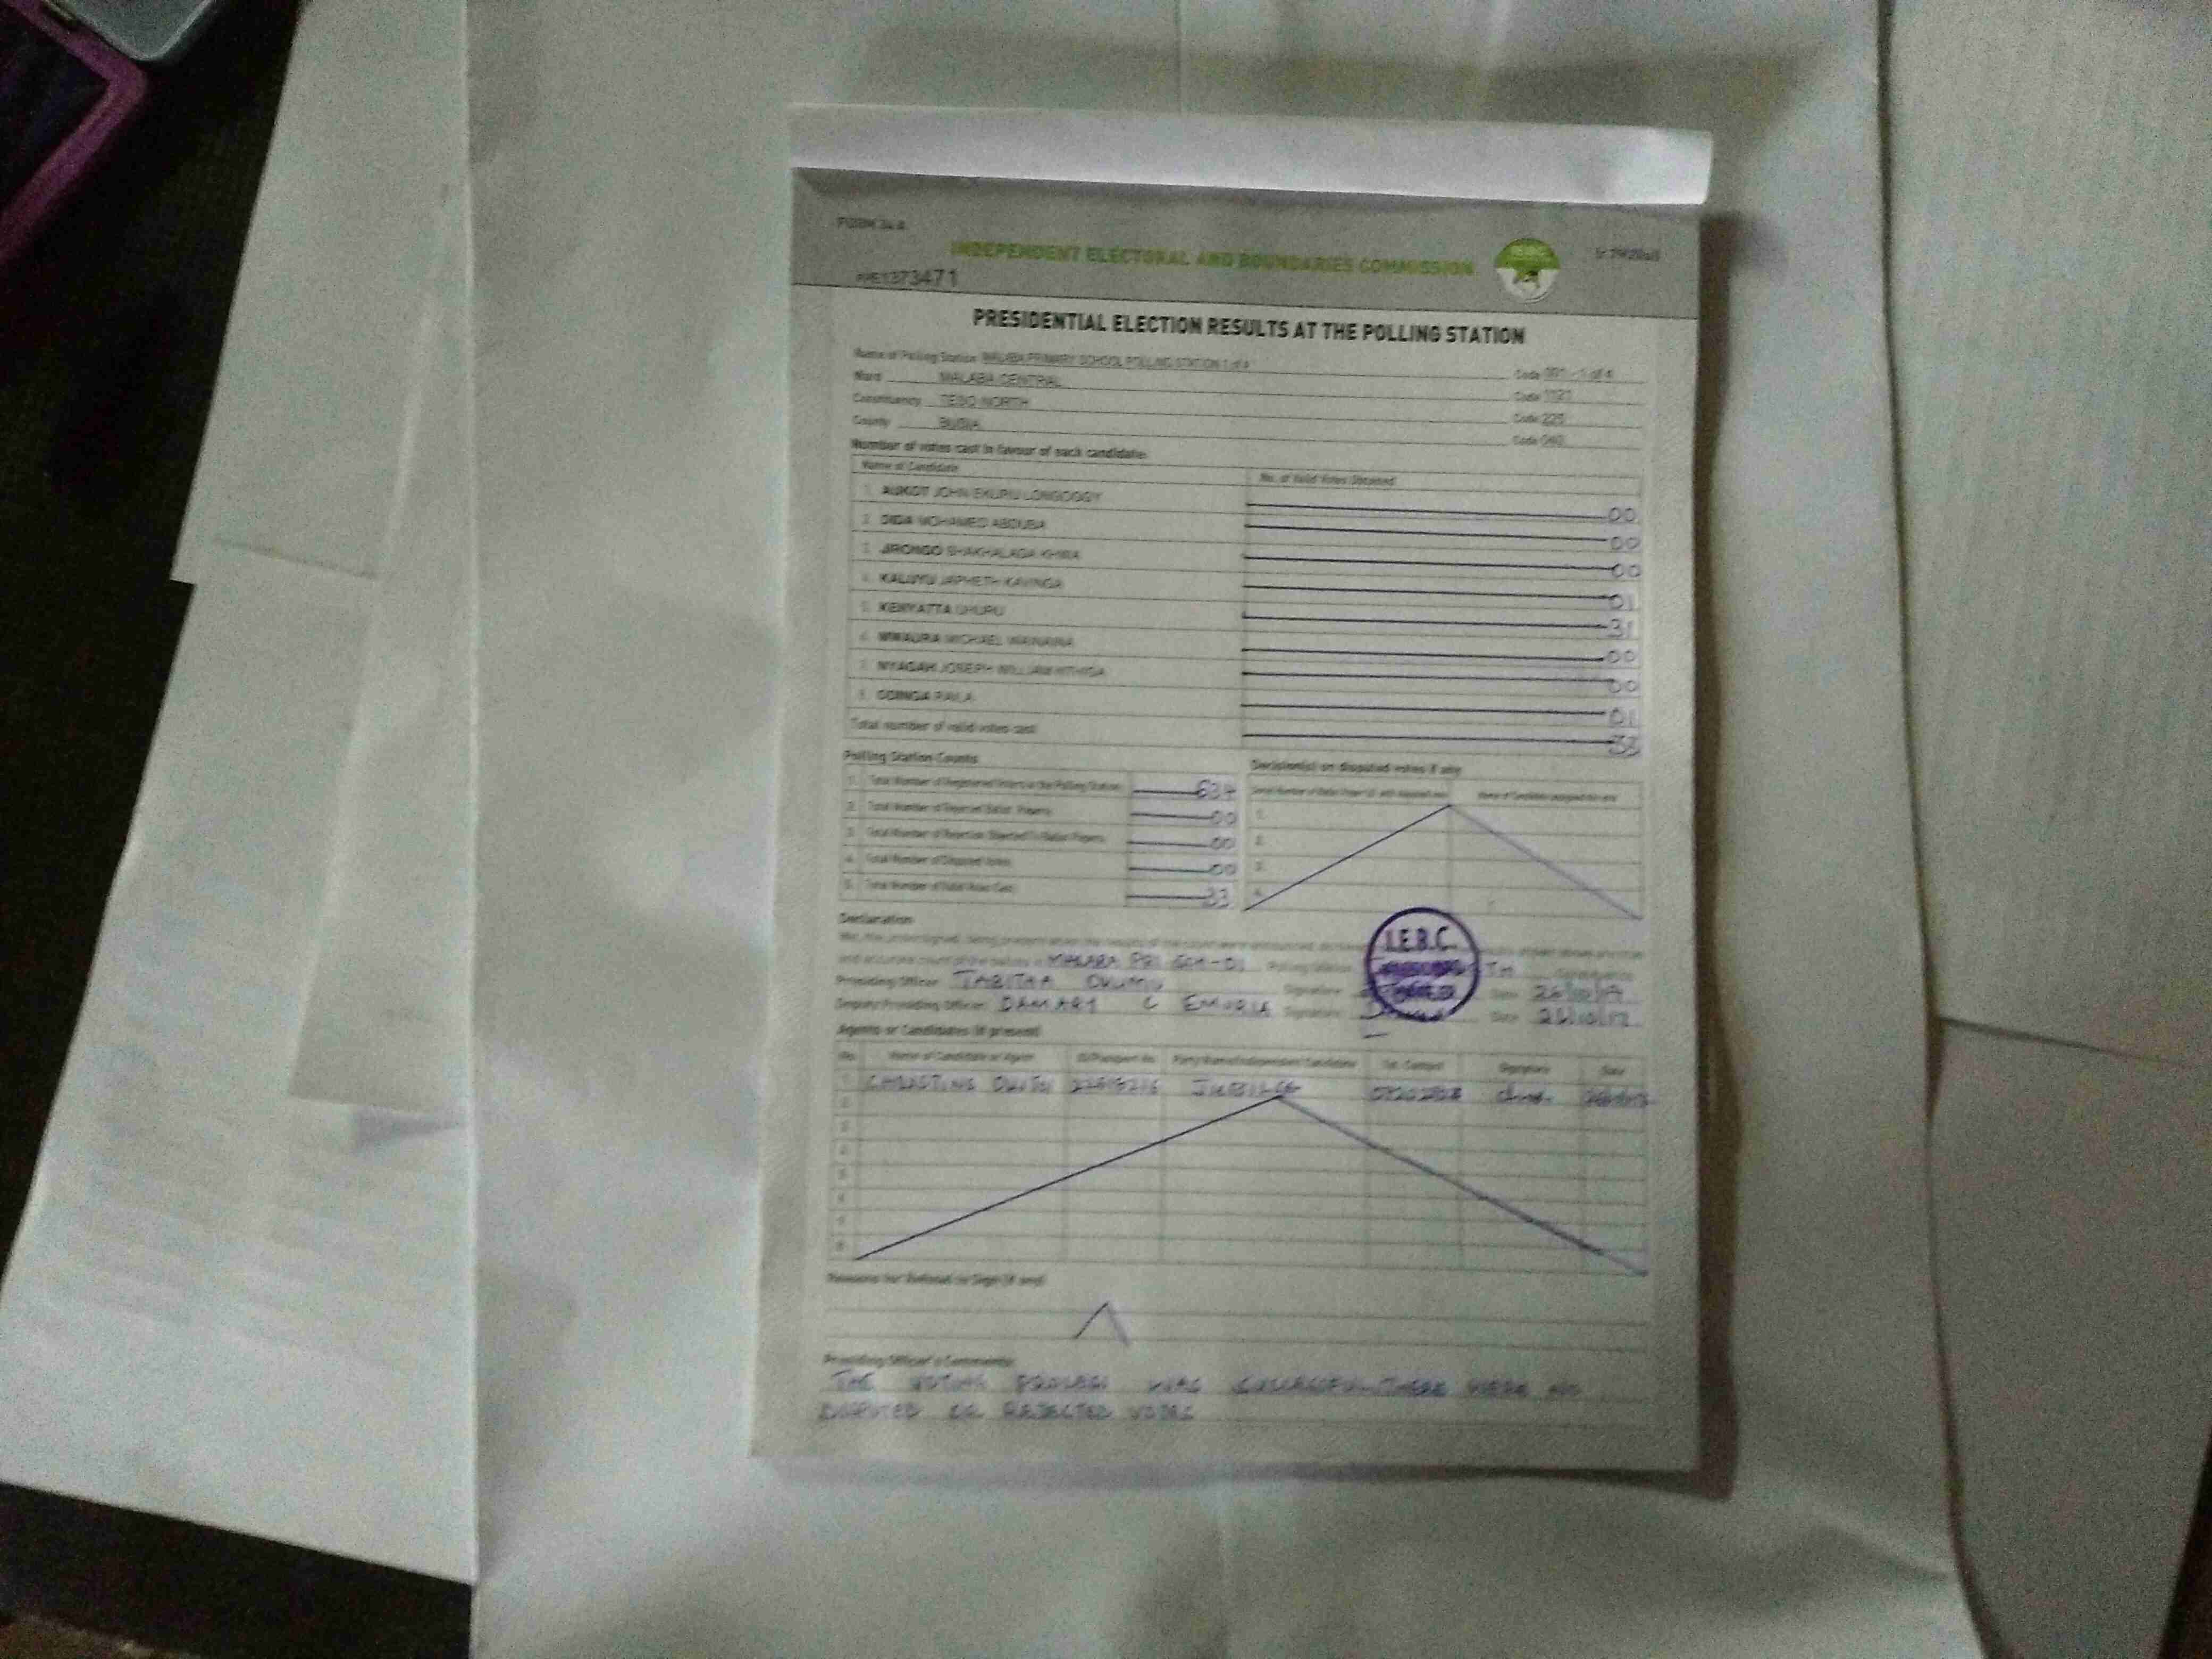 FORM 34 A
INDEPENDENT ELECTORAL AND BOUNDARIES COMMISSION
1373471
PRESIDENTIAL ELECTION RESULTS AT THE POLLING STATION
Name of Polling Station MALABA PRIMARY SCHOOL POLLING STATION 1 of 4 Code 1 of 4
Ward MALABA CENTRAL Code
Constituency TESO NORTH Code
County BUSIA Code
Number of votes cast in favour of each candidate:
Name of Candidate No. of Valid Votes Obtained
1. AUKOT JOHN EKURU LONGOGGY 00
2. DIDA MOHAMED ABDUBA 00
3. JIRONGO SHAKHALAGA KHWA 00
4. KALUYU JAPHETH KAVINGA 01
5. KENYATTA UHURU 31
6. MWAURA MICHAEL WAINAINA 00
7. NYAGAH JOSEPH WILLIAM NTHIGA 00
8. ODINGA RAILA 01
Total number of valid votes cast 33
Polling Station Counts
1. Total Number of Registered Voters in the Polling Station 634
2. Total Number of Rejected Ballot Papers 00
3. Total Number of Rejection Objected To Ballot Papers 00
4. Total Number of Disputed Votes 00
5. Total Number of Valid Votes Cast 33
Decision(s) on disputed votes if any
1.
2.
3.
4.
Declaration
MALABA PRI SCH-01 Polling Station
I.E.B.C.
Presiding Officer TABITHA OKUMU Signature Date 26/10/17
Deputy Presiding Officer DAMARY C EMURIA Signature Date 26/10/17
Agents or Candidates (if present)
No. Name of Candidate or Agent ID/Passport No. Party Name/Independent Candidate Tel. Contact Signature Date
1 JUBILEE
2
3
4
5
6
7
8
Reasons for Refusal to Sign (if any)
Presiding Officer's Comments:
THE VOTING PROCESS WAS SUCCESSFUL. THERE WERE NO
DISPUTED OR REJECTED VOTES